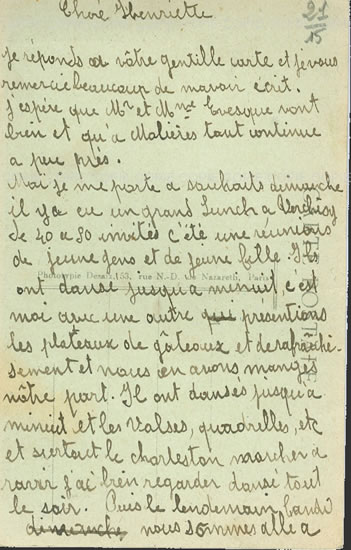 Chère Henriette
21
15
je réponds a vôtre gentille carte et je vous
remercie beaucoup de mavoir écrit.
J'espère que Mr et Mme Evesque vont
bien et qu'a Malières tout continue
a peu près.
Moi je me porte a souhaits dimanche
il y a eu un grand Lunch a
de 40 a 50 invités c'été une réunions
de jeune gens et de jeune fille. Ils
Phototypie Desaix, 153, rue N.-D. de Nazareth, Paris
ont dansé jusqu'a minuit, c'est
moi avec une autre qui présentions
les plateaux de gâteaux et de rafraîchi-
sement et nous en avons mangés
nôtre part. Il ont dansés jusqu'a
minuit et les valses, quadrelles, etc
et siertout le charleston marcher a
ravir j'ai bien regarder dansé tout
le soir. Puis le lendemain lundi
dimanche nous sommes allé a